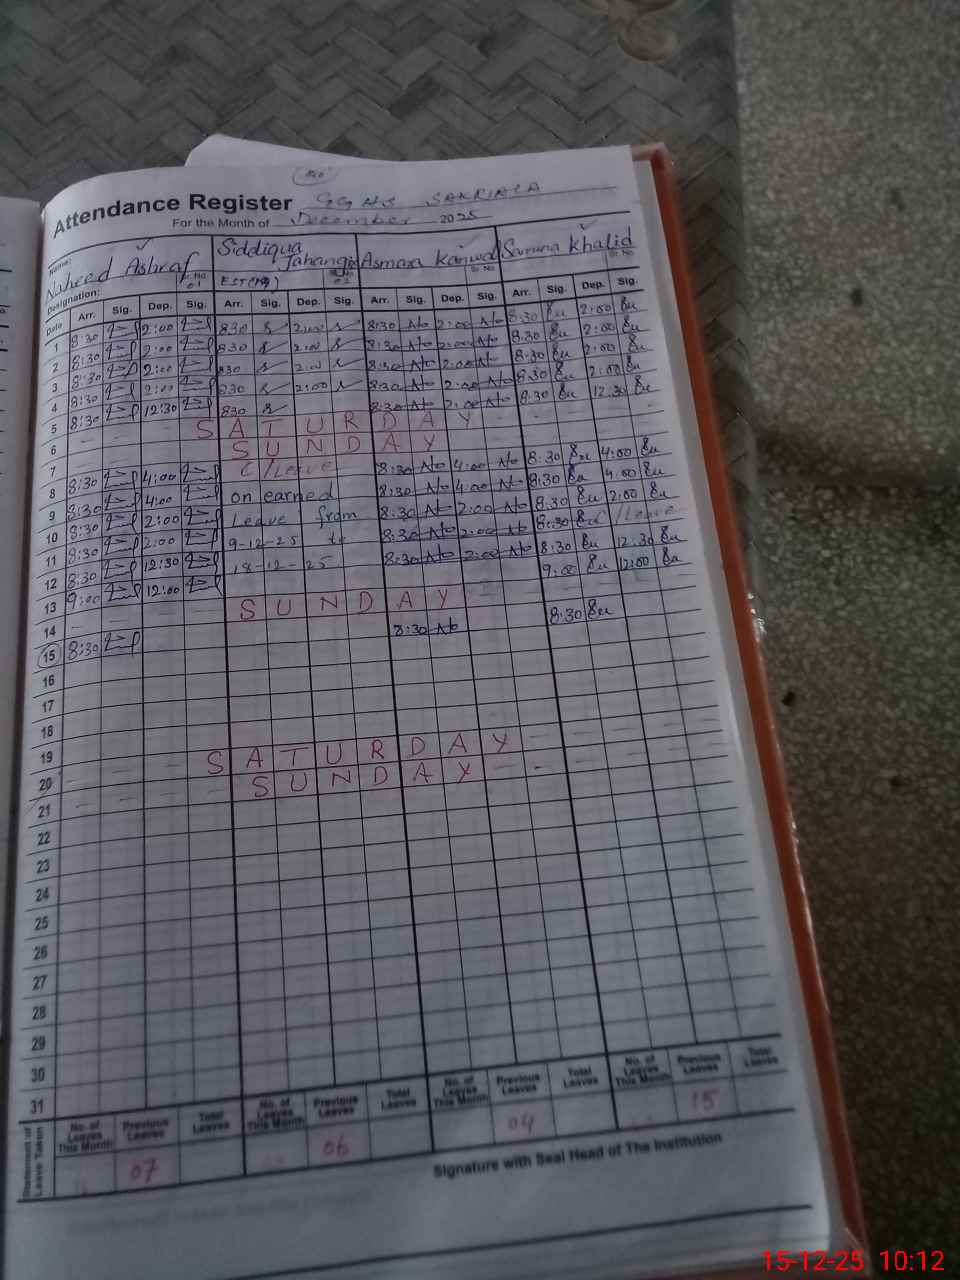 Attendance Register GGHS SAKRIALA
For the Month of December 2025
Name: Naheed Ashraf Siddiqua Jahangir Asmara Kanwal Samina Khalid
Designation: Sr No 01 EST(M) Sr No 02 Sr No Sr No
Date Arr. Sig. Dep. Sig. Arr. Sig. Dep. Sig. Arr. Sig. Dep. Sig. Arr. Sig. Dep. Sig.
1 8:30 2:00 830 2:00 8:30 2:00 8:30 2:00
2 8:30 2:00 830 2:00 8:30 2:00 8:30 2:00
3 8:30 2:00 830 2:00 8:30 2:00 8:30 2:00
4 8:30 2:00 830 2:00 8:30 2:00 8:30 2:00
5 8:30 12:30 830 8:30 2:00 8:30 12:30
6 SATURDAY
7 SUNDAY
8 8:30 4:00 C/Leave 8:30 4:00 8:30 4:00
9 8:30 4:00 on earned 8:30 4:00 8:30 4:00
10 8:30 2:00 Leave from 8:30 2:00 8:30 2:00
11 8:30 2:00 9-12-25 to 8:30 2:00 8:30 C/Leave
12 8:30 12:30 18-12-25 8:30 2:00 8:30 12:30
13 9:00 12:00 9:00 12:00
14 SUNDAY
15 8:30 8:30 8:30
16
17
18
19
20 SATURDAY
21 SUNDAY
22
23
24
25
26
27
28
29
30
31
Statement of Leave Taken
No. of Leaves This Month Previous Leaves Total Leaves No. of Leaves This Month Previous Leaves Total Leaves No. of Leaves This Month Previous Leaves Total Leaves No. of Leaves This Month Previous Leaves Total Leaves
07 06 04 15
Signature with Seal Head of The Institution
15-12-25 10:12